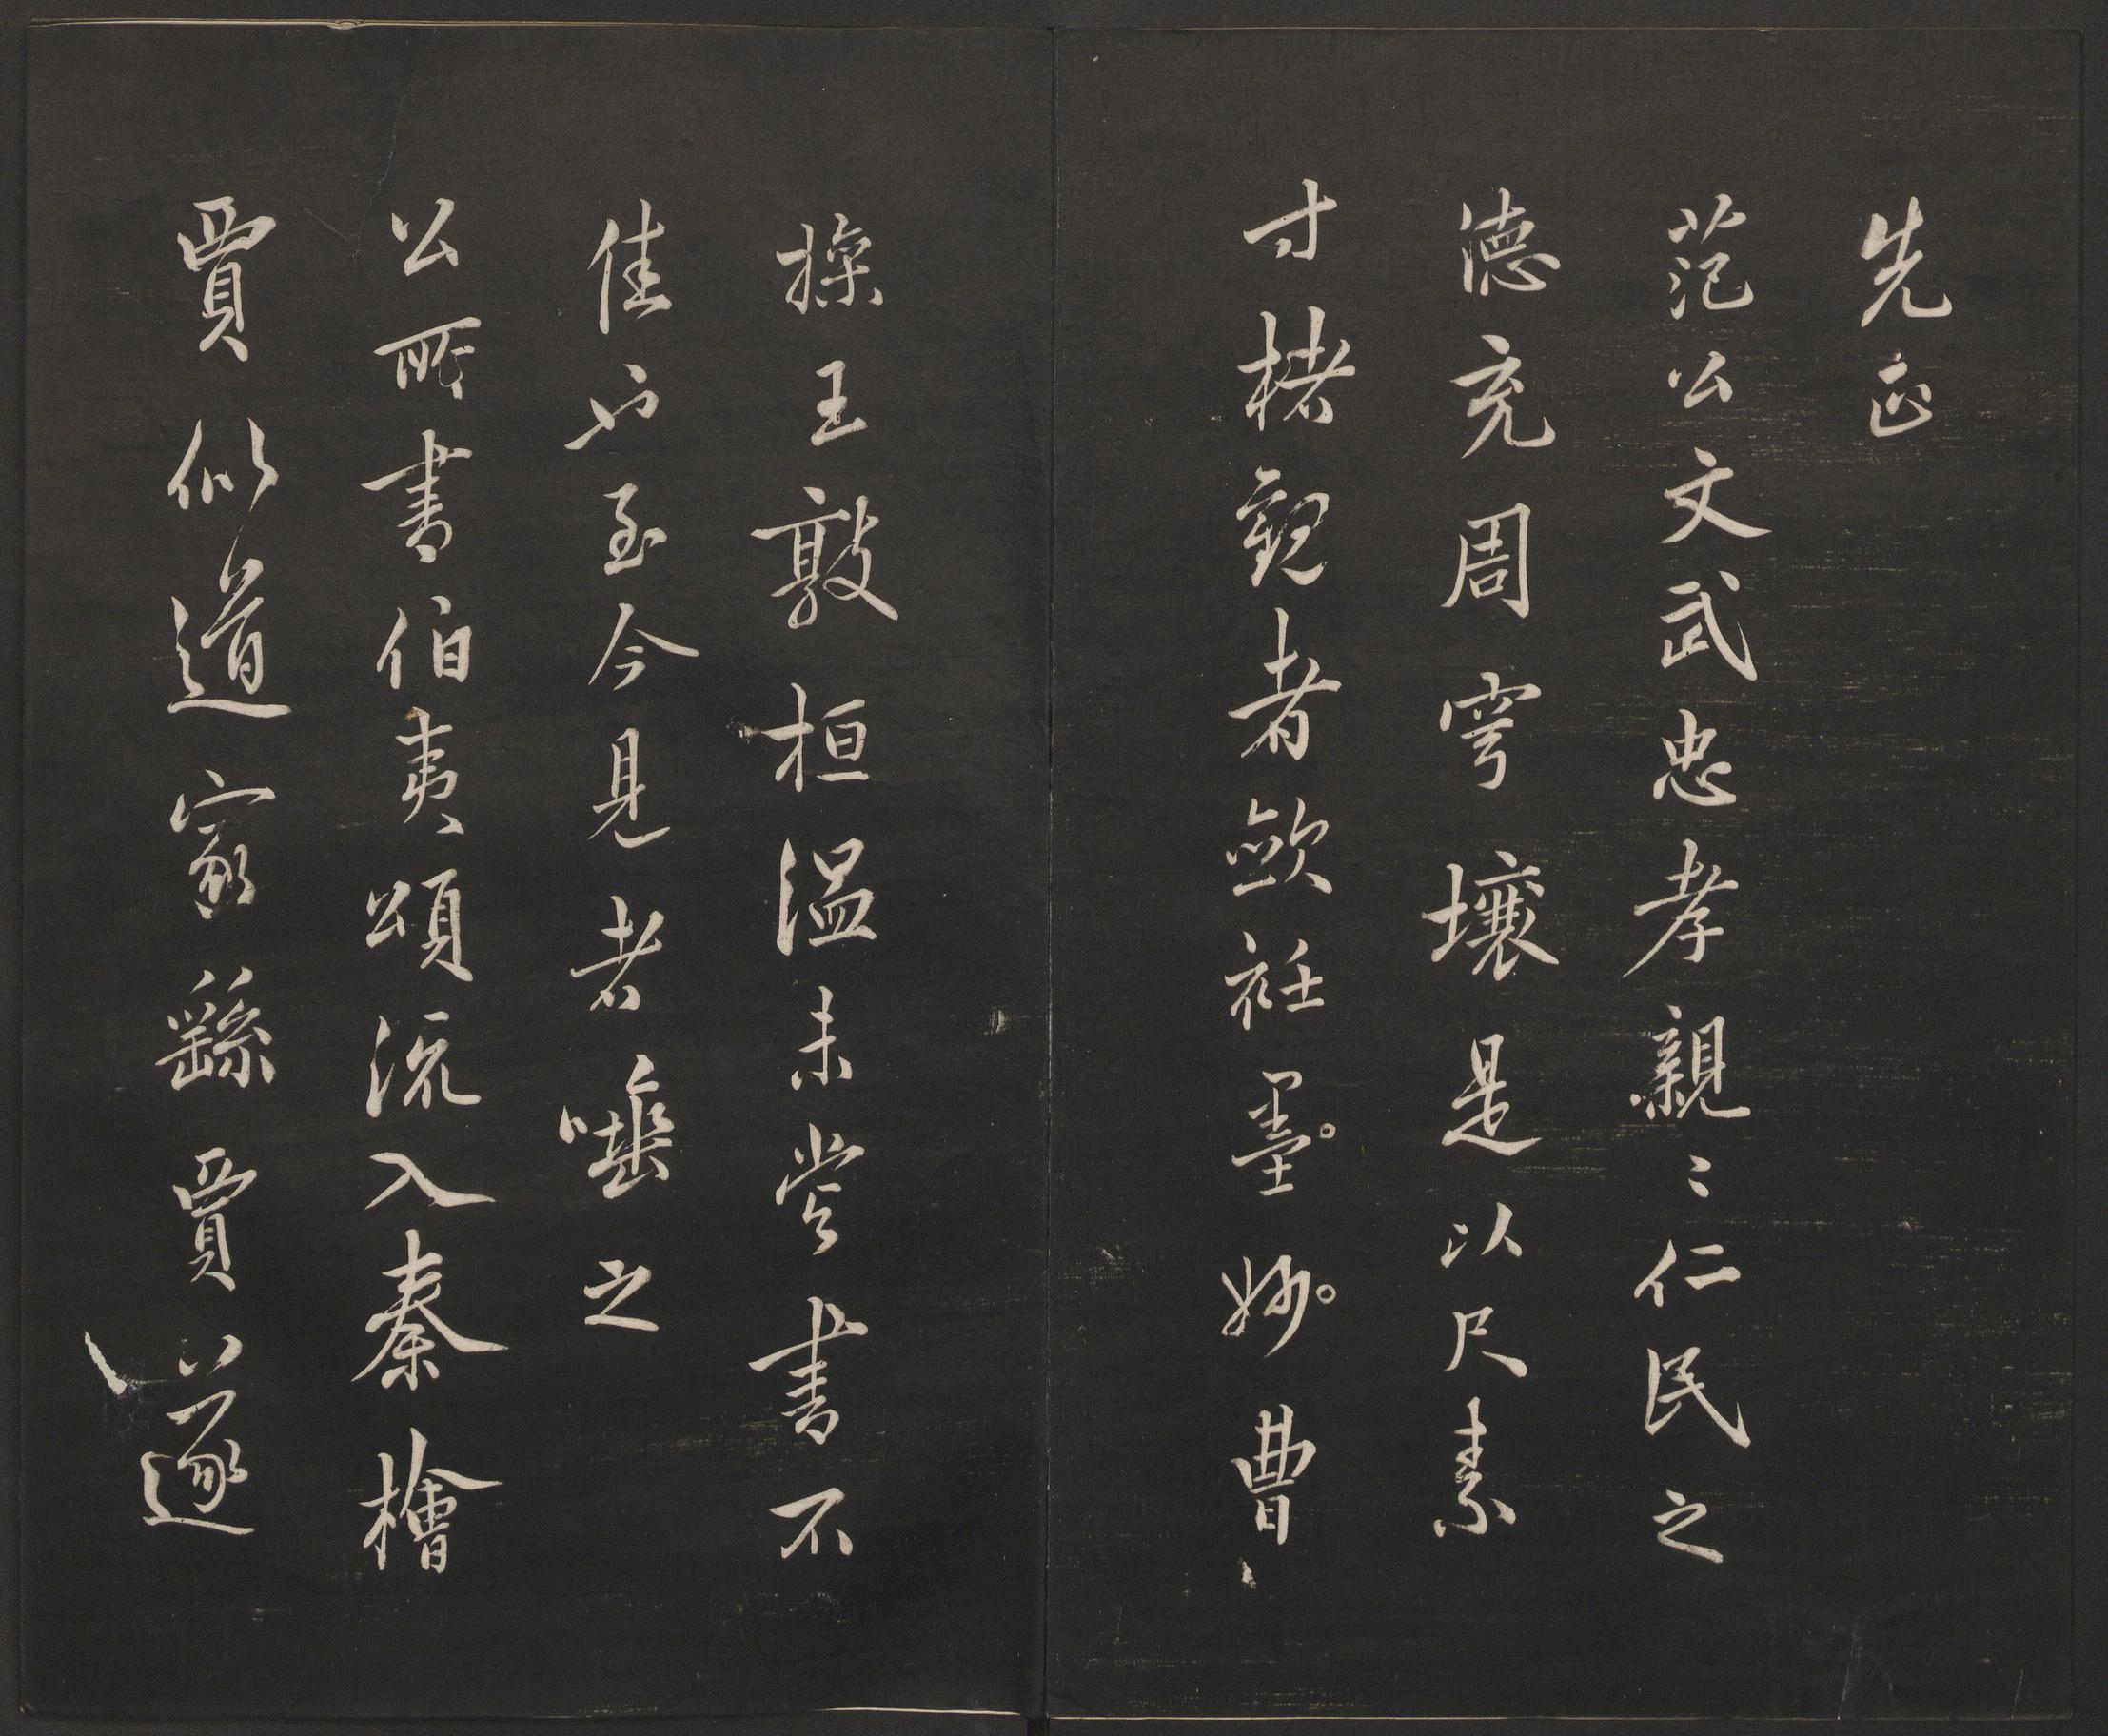 先正
范公文武忠孝親〻仁民之
德充周穹壤是以尺素
寸楮觀者歛衽墨妙曹
操王敦桓溫未嘗書不
佳也至今見者唾之
公所書伯夷頌流入秦檜
賈似道家繇賈以遂